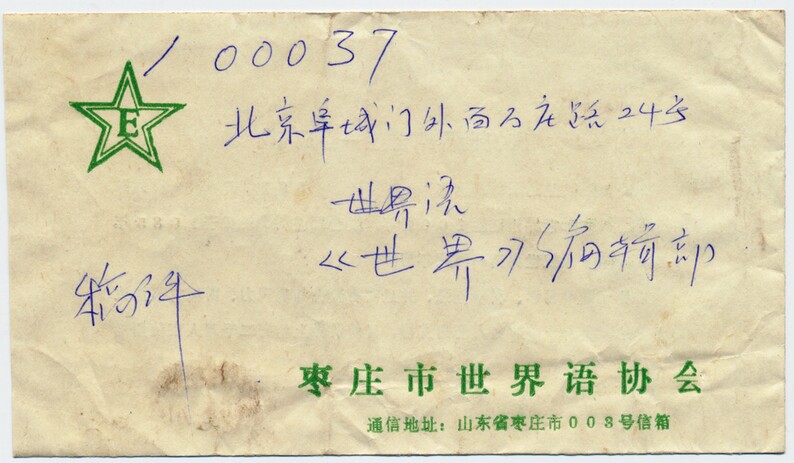 E
100037
北京阜城门外百万庄路24号
世界语
《世界》编辑部
稿件
枣庄市世界语协会
通信地址：山东省枣庄市008号信箱